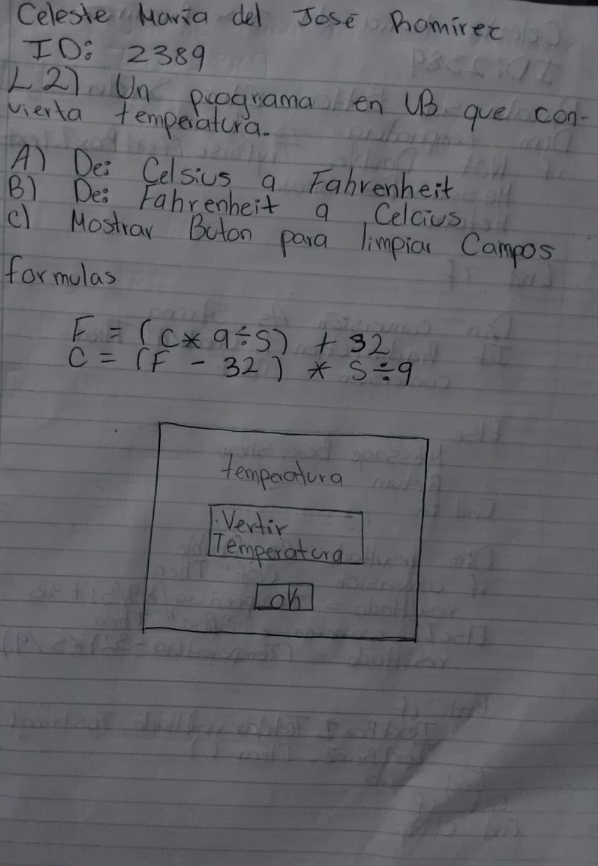 Celeste María del José Ramirez
ID: 2389
L 2) Un programa en VB que con-
vierta temperatura.
A) De: Celsius a Fahrenheit
B) De: Fahrenheit a Celcius
C) Mostrar Boton para limpiar Campos
formulas
F = (C* 9÷5) + 32
C = (F - 32) * 5÷9
tempaatura
Vertir
Temperatura
ok